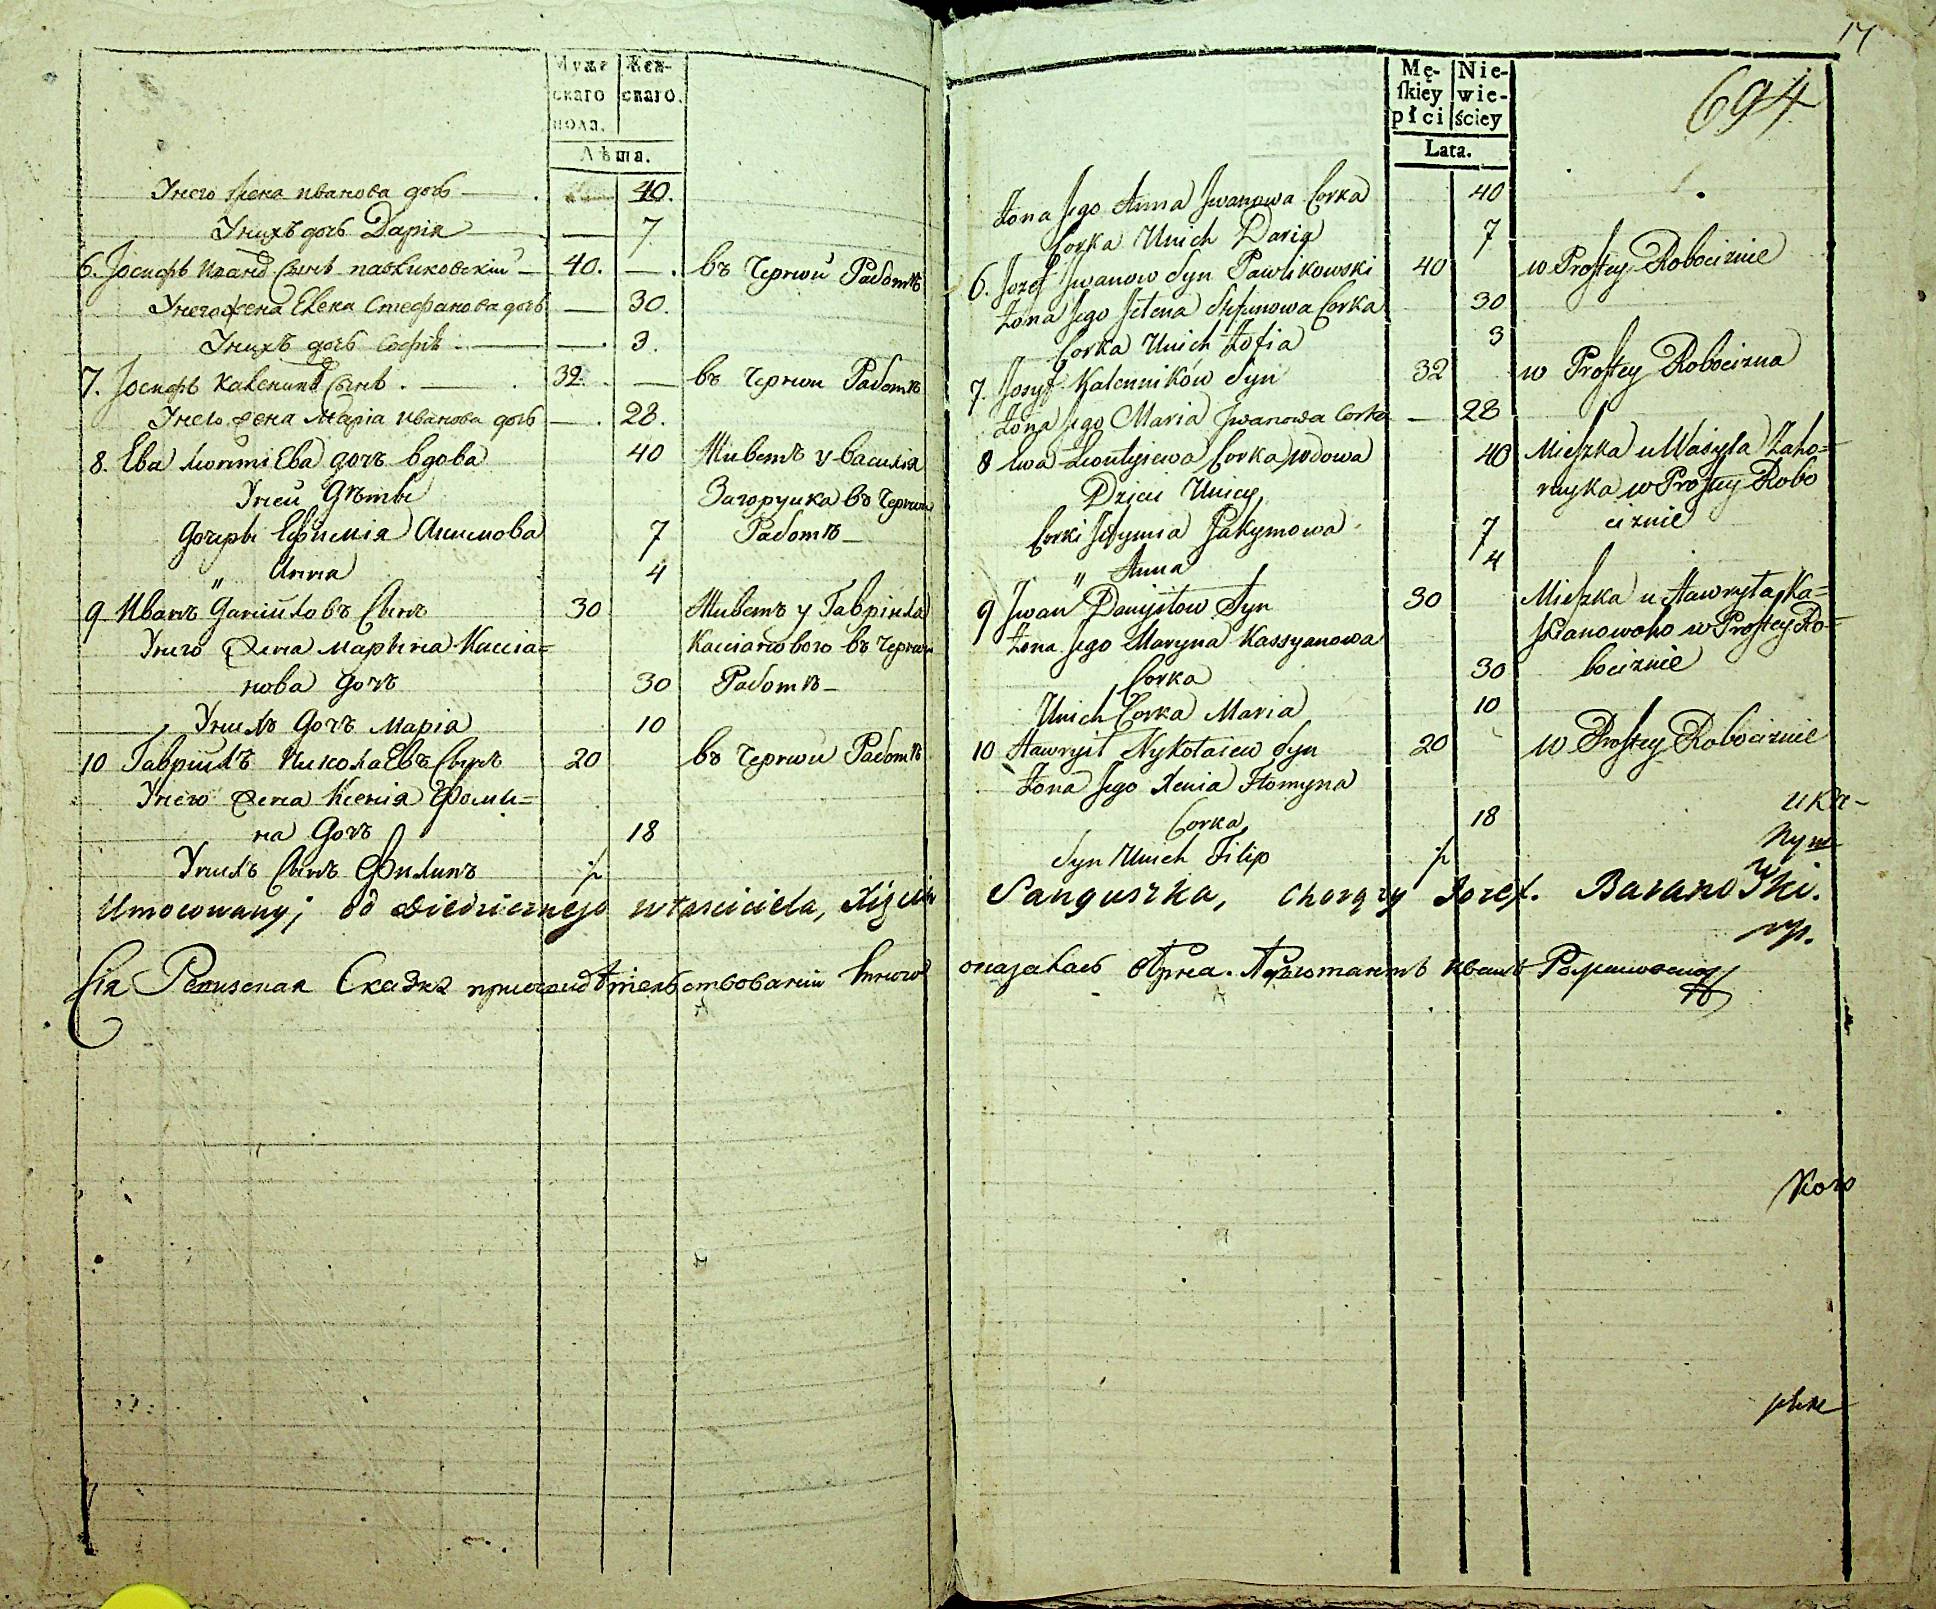 Муже
скаго
пола.
Жен-
скаго.
Лѣта.
Унего жена иванова дочь — 40.
Унихъ дочь Дарія — 7
6. Іосифъ Ивановъ Сынъ павликовскій — 40. — въ Черной Работѣ
Унего жена Елена Стефанова дочь — 30.
Унихъ дочь Софія — 3.
7. Іосифъ Калениковъ Сынъ. — 32. — въ Черной Работѣ
Унего жена Марія Иванова дочь — 28.
8. Ева Леонтіева дочь вдова 40 Живетъ у Василія
Уней Дѣти Загоруйка въ Черной
Дочери Ефимія Акимова 7 Работѣ —
" Анна 4
9 Иванъ Даніиловъ Сынъ 30 Живетъ у Гавріила
Унего Жена Марина Кассіа= Кассіанового въ Черной
нова Дочь 30 Работѣ —
Унихъ Дочь Марія 10
10 Гавріилъ Николаевъ Сынъ 20 въ Черной Работѣ
Унего Жена Ксенія Ѳоми=
на Дочь 18
Унихъ Сынъ Филипъ ½
17
694
Mę-
ſkiey
płci
Nie-
wie-
ściey
Lata.
Żona Jego Anna Jwanowa Corka 40
Corka Unich Daria 7
6. Jozef Jwanow Syn Pawlikowski 40 w Prostey Robociznie
Żona Jego Jelena Stefanowa Corka 30
Corka Unich Zofia 3
7. Josyf Kalenników Syn 32 w Prostey Robocizna
Żona Jego Maria Jwanowa Corka — 28
8 Ewa Leontyiewa Corka wdowa 40 Mieszka u Wasyla Zaho=
Dzieci Uniey ruyka w Prostey Robo
Corki Jefymia Jakymowa 7 ciznie
" Anna 4
9 Jwan Danyłow Syn 30 Mieszka u Hawryła Ka=
Żona Jego Maryna Kassyanowa ssianowoho w Prostey Ro=
Corka 30 bociznie
Unich Corka Maria 10
10 Hawryił Nykołaiew Syn 20 w Prostey Robociznie
Żona Jego Xenia Homyna
Corka 18
Syn Unich Filip ½
Umocowany od Dziedzicznego właściciela, Xięcia Sanguszka, Chorąży Jozef. Baranowski.
mp.
Сія Ревизская Сказка при освидѣтельствованіи вѣрною оказалась